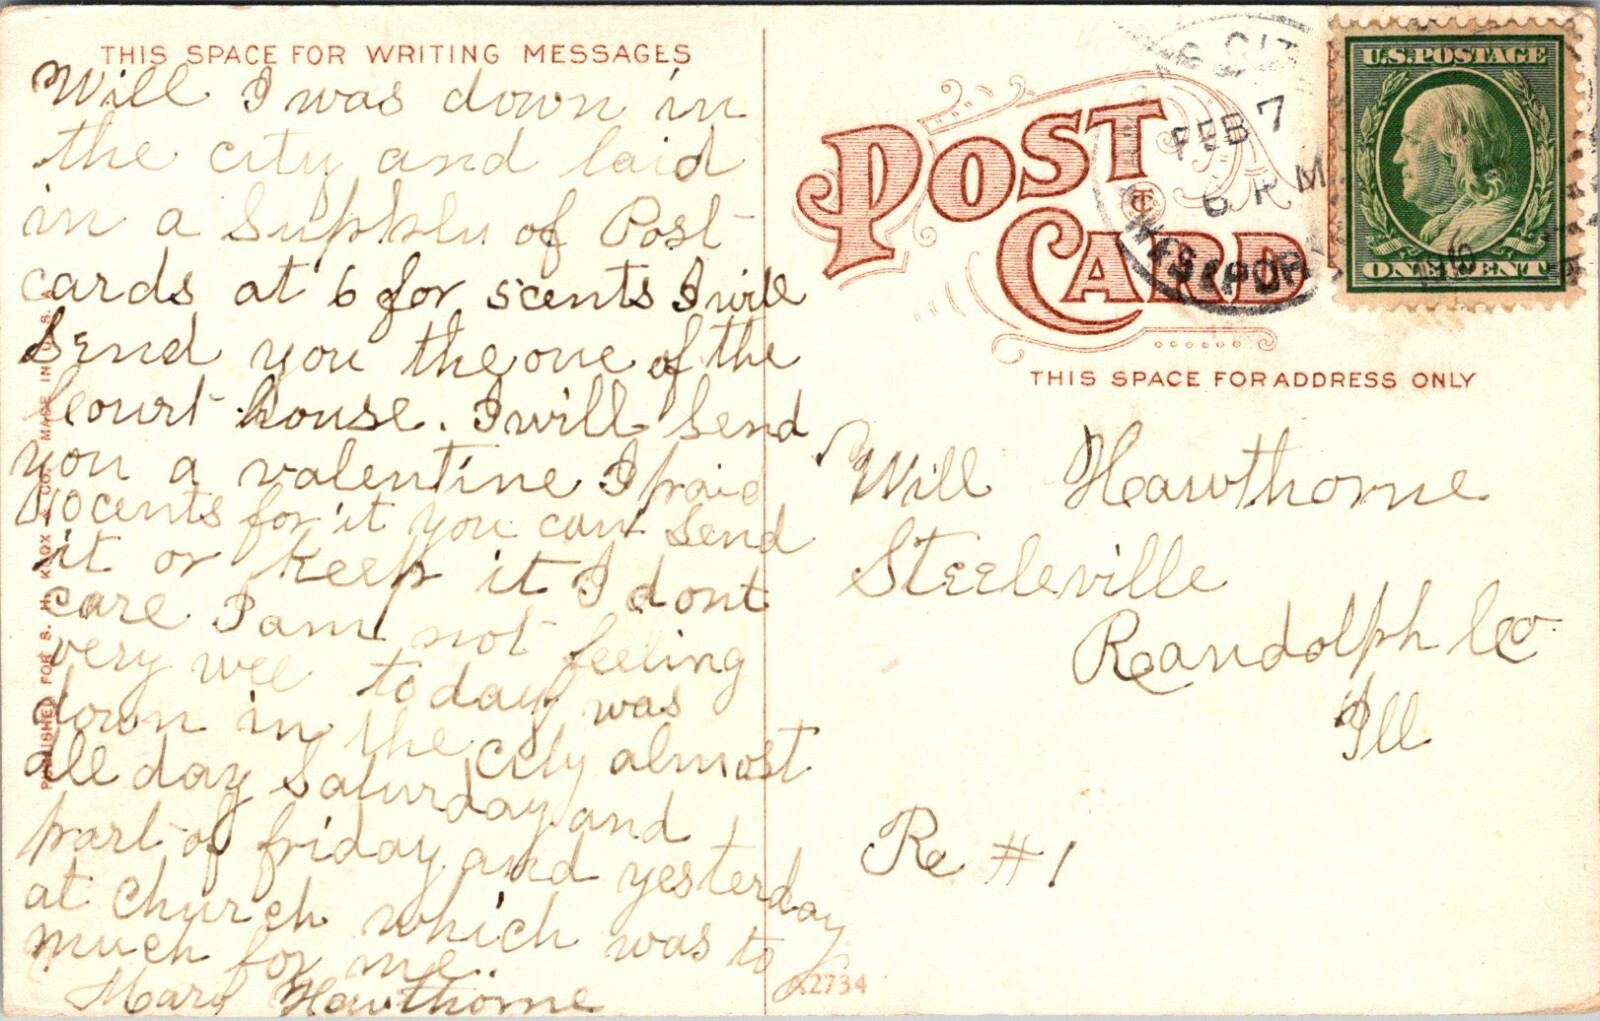 THIS SPACE FOR WRITING MESSAGES
Will I was down in
the city and laid
in a Supply of Post
cards at 6 for 5cents I will
Send you the one of the
Court house. I will send
you a valentine I paid
10cents for it you can send
it or keep it I dont
care I am not feeling
very well today was
down in the city almost
all day Saturday and
part of friday and yesterday
at church which was to
much for me.
Mary Hawthorne
PUBLISHED FOR S. H. KNOX & CO. MADE IN U. S. A.
POST CARD
FEB 7
6 P M
U.S. POSTAGE
ONE CENT
THIS SPACE FOR ADDRESS ONLY
Will Hawthorne
Steeleville
Randolph Co
Ill
Re #1
A2734